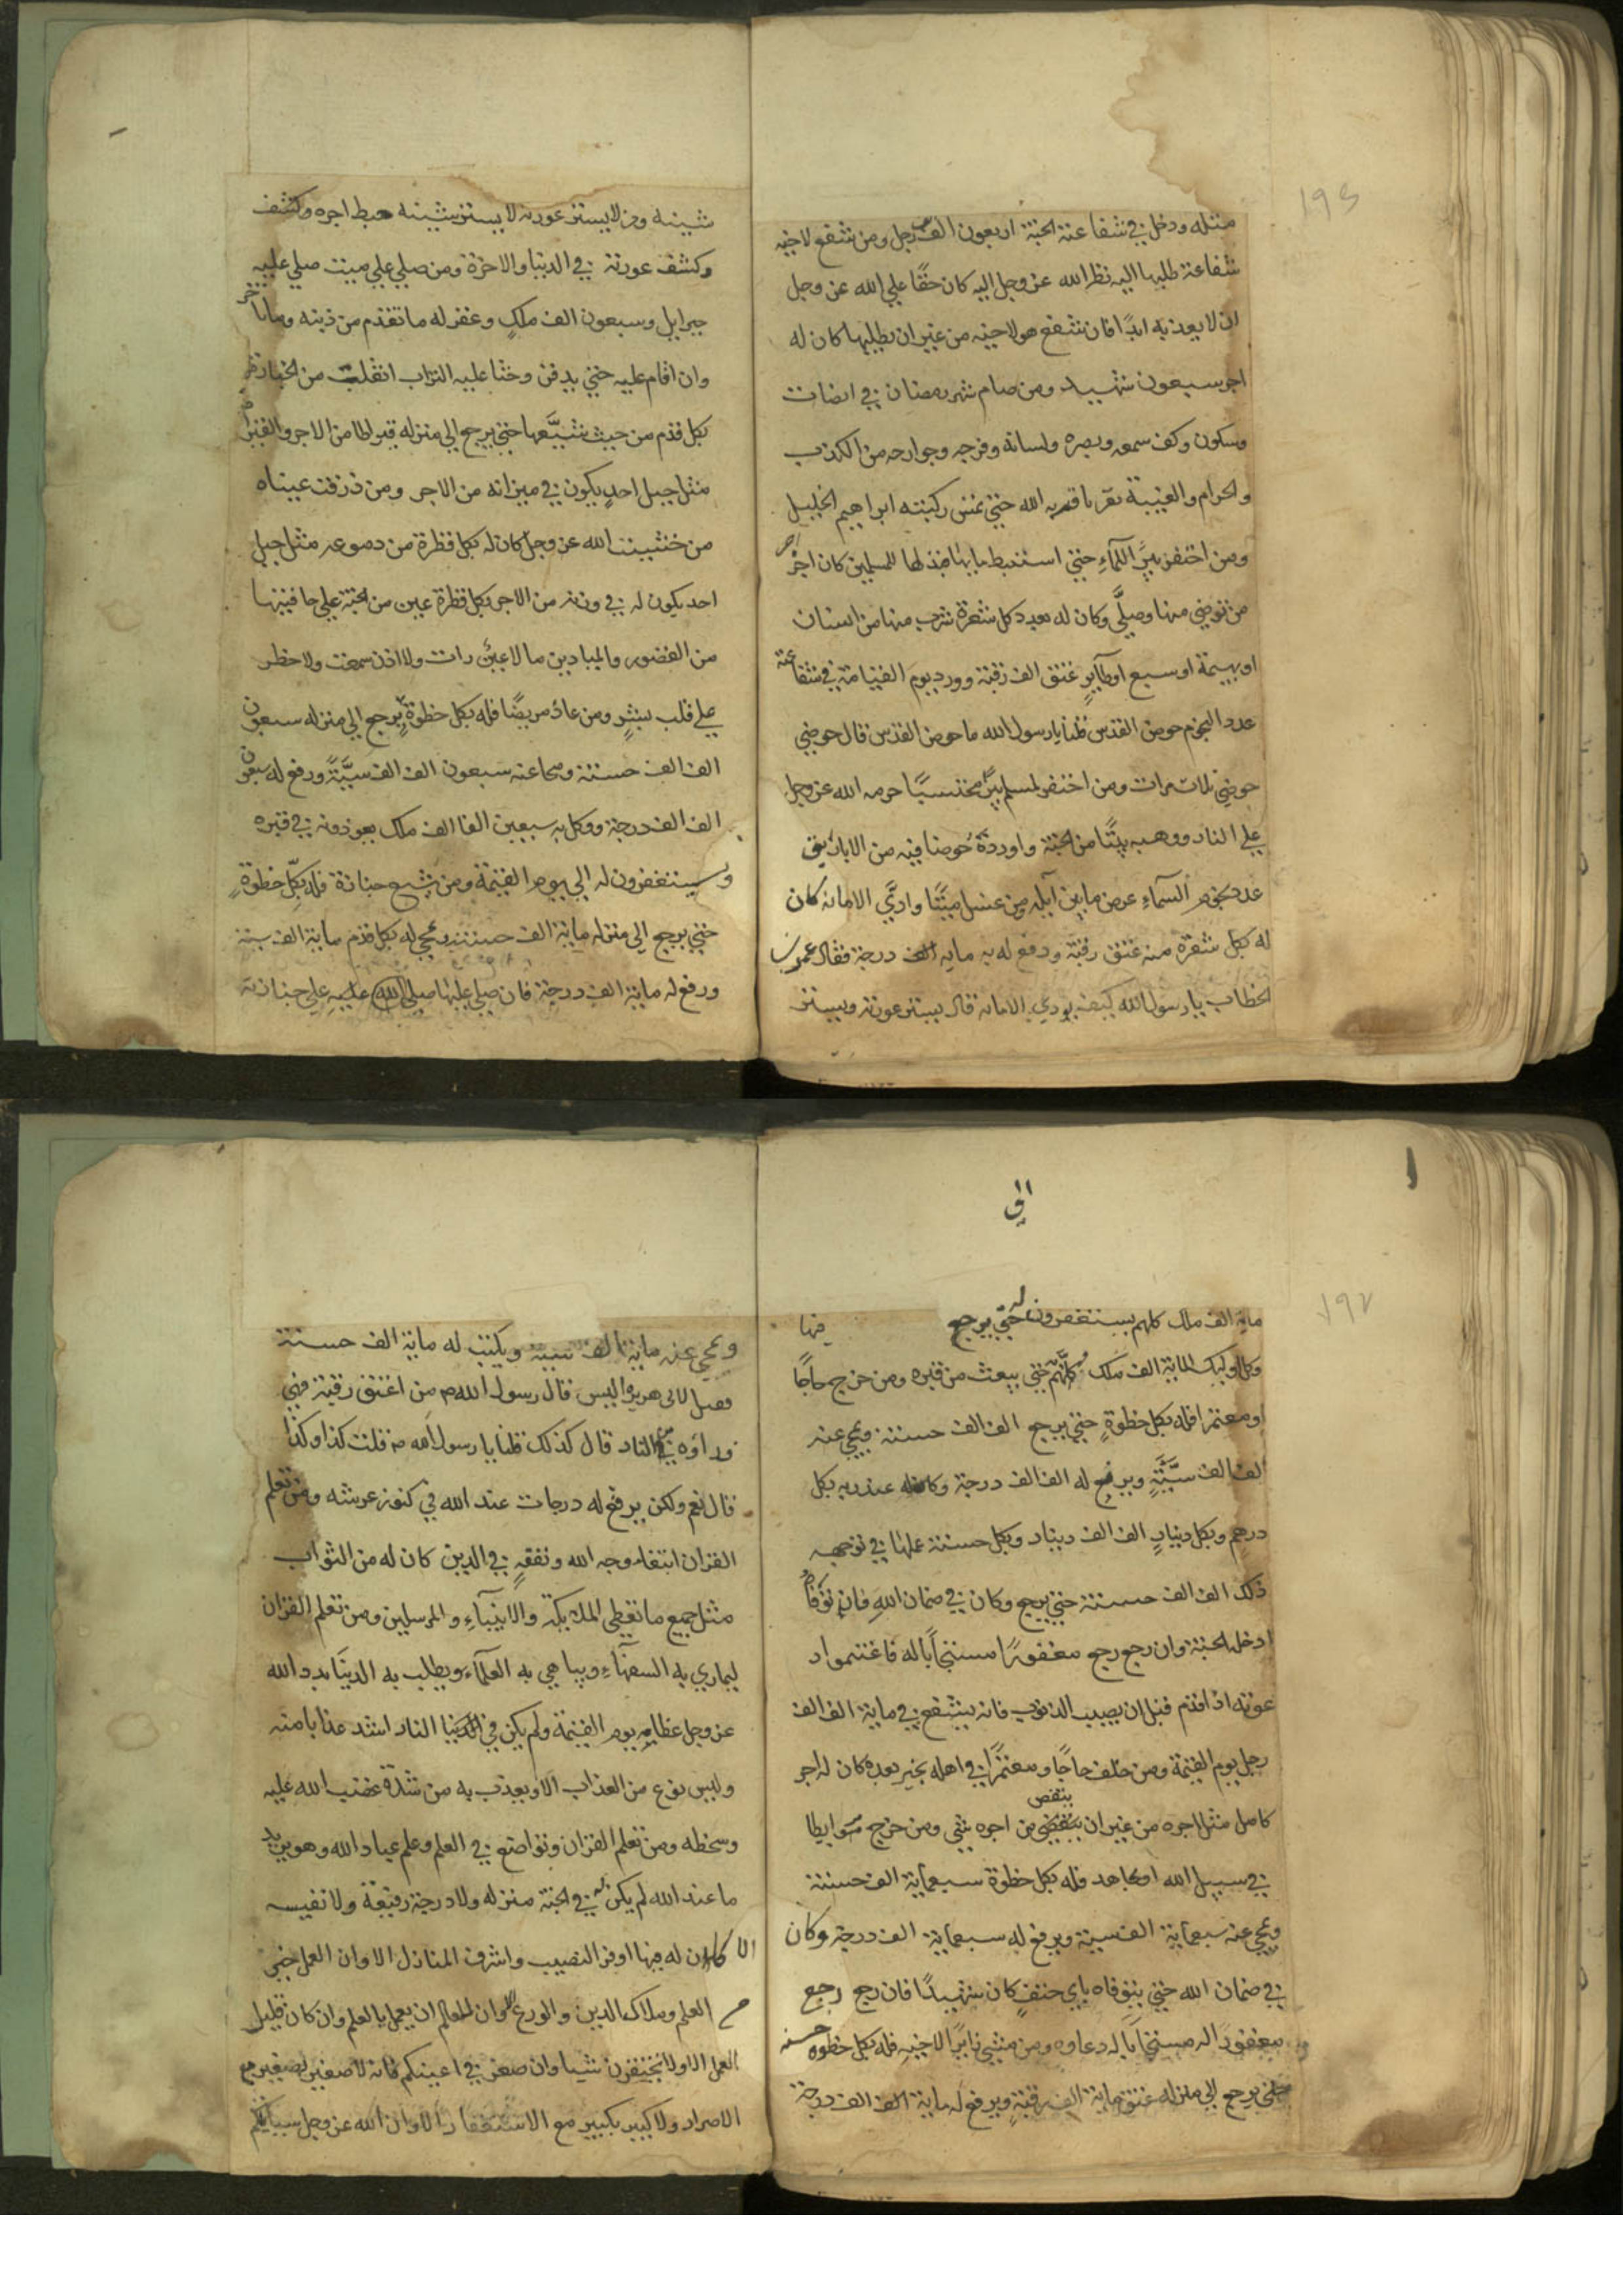 ١٩٤
مثله ودخل في شفاعته الجنة اربعون الف رجل ومن شفع لاخيه
شفاعة طلبها اليه نظر الله عز وجل اليه كان حقًا علي الله عز وجل
ان لا يعذبه ابدًا فان شفع هو لاخيه من غير ان يطلبها كان له
اجر سبعون شهيد ومن صام شهر رمضان في انصات
وسكون وكف سمعه وبصره ولسانه وفرجه وجوارحه من الكذب
والحرام والغيبة تقربا قربه الله حتي تمس ركبته ابراهيم الخليل
ومن احتفر بيرًا للمآءِ حتي استنبط ماءها فبذلها للمسلمين كان له اجر
من توضي منها وصلَّي وكان له بعدد كل شعرة شرب منها من انسان
او بهيمة او سبع او طآيرٍ عتق الف رقبة وورد يوم القيامة في شفاعته
عدد النجوم حوض القدس قلنا يارسول الله ما حوض القدس قال حوضي
حوضي ثلاث مرات ومن احتفر لمسلم بيرًا محتسبًا حرمه الله عز وجل
علي النار ووهبه بيتًا من الجنة واوردهٔ حوضا فيه من الاباريق
عدد نجوم السمآءِ عرض ما بين آيله ومن غسل ميتًا وادَّي الامانه كان
له بكل شعرة منه عتق رقبة ورفع له به مايه الف درجة فقال عمر بن
الخطاب يارسول الله كيف يودي الامانه قال يستر عورته ويستر
شينه ومن لا يستر عورته لا يستر شينه حبط اجره وكشف
وكشف عورته في الدنيا والاخرة ومن صلي علي ميت صلي عليه
جبرايل وسبعون الف ملكٍ وغفر له ما تقدم من ذنبه وما تاخر
وان اقام عليه حتي يدفن وحثا عليه التراب انقلب من الجنازة
بكل قدم من حيث شيَّعها حتي يرجع الي منزله قيراطا من الاجر والقيراط
مثل جبل احدٍ يكون في ميزانه من الاجر ومن ذرفت عيناه
من خشيت الله عز وجل كان له بكل قطرة من دموعه مثل جبل
احد يكون له في وزنه من الاجر بكل قطرة عين من الجنة علي حافيتها
من القصور والميادين ما لا عينٌ رات ولا اذن سمعت ولا خطر
علي قلب بشرٍ ومن عاد مريضًا فله بكل خطوةٍ يرجع الي منزله سبعون
الف الف حسنة ومحا عنه سبعون الف الف سيَّئةً ورفع له سبعون
الف الف درجة ووكل به سبعين الفا الف ملك يعودونه في قبره
ويستغفرون له الي يوم القيمة ومن شيع جنازة فله بكلّ خطوةٍ
حتي يرجع الي منزله ماية الف حسنة ويمحي له بكل قدم ماية الف سيئة
ورفع له ماية الف درجة فان صلي عليها صلي الله عليه علي جنازته
الي
١٩٢
ماية الف ملك كلهم يستغفرون له حتي يرجع فيها
وكل اوليك الماية الف ملك كلَّهُم حتي يبعث من قبره ومن خرج حاجًا
او معتمرا فله بكل خطوةٍ حتي يرجع الف الف حسنة ويمحي عنه
الف الف سيَّئةٍ ويرفع له الف الف درجة وكان له عند ربه بكل
درهم وبكل دينارٍ الف الف دينار وبكل حسنة عملها في توجهه
ذلك الف الف حسنة حتي يرجع وكان في ضمان اللهِ فان توفاه
ادخله الجنة وان رجع رجع مغفورًا مستجابًا له فاغتنموا د
عوته اذا قدم قبل ان يصيب الذنوب فانه يشفع في ماية الف الف
رجل يوم القيمة ومن خلف حاجًا ومعتمرًا في اهله بخير بعده كان له اجر
ينقص
كامل مثل اجره من غير ان ينقص من اجره شي ومن خرج مرابطا
في سبيل الله او مجاهد فله بكل خطوة سبعماية الف حسنة
ويمحي عنه سبعماية الف سيية ويرفع له سبعماية الف درجة وكان
في ضمان الله حتي يتوفاه باي حتفٍ كان شهيدًا فان رجع رجع
مغفورًا له مستجابًا له دعاوه ومن مشي زايرًا لاخيه فله بكل خطوه حسنه
حتي يرجع الي منزله عتق ماية الف رقبةٍ ويرفع له ماية الف الف درجة
ويمحي عنه ماية الف سيية ويكتب له ماية الف حسنة
فقيل لابي هريرة اليس قال رسول الله ص من اعتق رقبة فهي
فداؤه من النار قال كذلك قلنا يا رسول الله ص قلت كذا وكذا
قال نعم ولكن يرفع له درجات عند الله في كنوز عرشه ومن تعلم
القران ابتغاء وجه الله وتفقهٍ في الدين كان له من الثواب
مثل جميع ما تعطي الملايكة والانبيآءِ والمرسلين ومن تعلم القران
ليماري به السفهآءِ ويباهي به العلمآء ويطلب به الدنيَا بدد الله
عز وجل عظامه يوم القيمة ولم يكن في النار اشد عذابا منه
وليس نوع من العذاب الا ويعذب به من شدة غضب الله عليه
وسخطه ومن تعلم القران وتواضع في العلم وعلم عباد الله وهو يريد
ما عند الله لم يكن له في الجنة منزله ولا درجة رفيعة ولا نفيسه
الا كان له فيها اوفر النصيب واشرف المنازل الا وان العمل خير
من العلم وملاك الدين والورع وان العالم ان يعمل بالعلم وان كان قليل
العمل الا ولا تحتقرن شيا وان صغر في اعينكم فانه لا صغير بصغير مع
الاصرار ولا كبير بكبير مع الاستغفار الا وان الله عز وجل سيايلكم